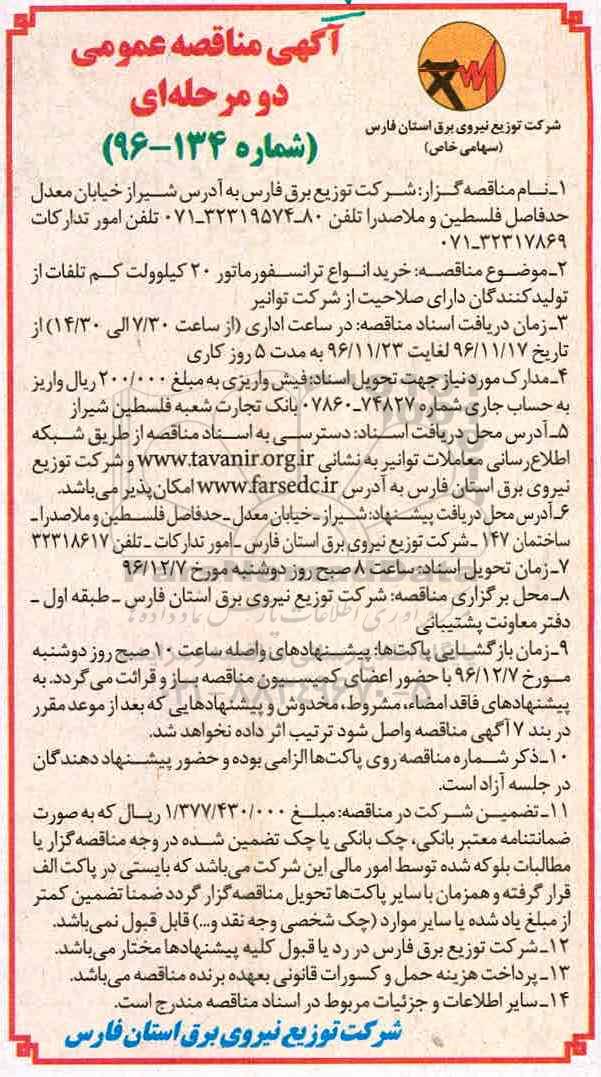 آگهی مناقصه عمومی
دو مرحله‌ای
(شماره ۱۳۴-۹۶)
شرکت توزیع نیروی برق استان فارس
(سهامی خاص)
۱ـ نـام مناقصه گـزار: شـرکت توزیع برق فارس به آدرس شیـراز خیابان معدل
حدفاصل فلسطین و ملاصدرا تلفن ۸۰ـ۳۲۳۱۹۵۷۴ـ۰۷۱ تلفن امور تدارکات
۰۷۱ـ۳۲۳۱۷۸۶۹
۲ـ موضـوع مناقصـه: خرید انـواع ترانسـفورماتور ۲۰ کیلوولت کـم تلفات از
تولیدکنندگان دارای صلاحیت از شرکت توانیر
۳ـ زمان دریافت اسناد مناقصه: در ساعت اداری (از ساعت ۷/۳۰ الی ۱۴/۳۰) از
تاریخ ۹۶/۱۱/۱۷ لغایت ۹۶/۱۱/۲۳ به مدت ۵ روز کاری
۴ـ مدارک مورد نیاز جهت تحویل اسناد: فیش واریزی به مبلغ ۲۰۰/۰۰۰ ریال واریز
به حساب جاری شماره ۷۴۸۲۷ـ۰۷۸۶۰ بانک تجارت شعبه فلسطین شیراز
۵ـ آدرس محل دریافت اسـناد: دسترسـی به اسـناد مناقصه از طریق شـبکه
اطلاع‌رسانی معاملات توانیر به نشانی www.tavanir.org.ir و شرکت توزیع
نیروی برق استان فارس به آدرس www.farsedc.ir امکان‌پذیر می‌باشد.
۶ـ آدرس محل دریافت پیشـنهاد: شیراز ـ خیابان معدل ـ حدفاصل فلسطین و ملاصدرا ـ
ساختمان ۱۴۷ ـ شرکت توزیع نیروی برق استان فارس ـ امور تدارکات ـ تلفن ۳۲۳۱۸۶۱۷
۷ـ زمان تحویل اسناد: ساعت ۸ صبح روز دوشنبه مورخ ۹۶/۱۲/۷
۸ـ محل برگزاری مناقصه: شرکت توزیع نیروی برق استان فارس ـ طبقه اول ـ
دفتر معاونت پشتیبانی
۹ـ زمان بازگشایی پاکت‌ها: پیشـنهادهای واصله ساعت ۱۰ صبح روز دوشنبه
مـورخ ۹۶/۱۲/۷ با حضور اعضای کمیسـیون مناقصه بـاز و قرائت می‌گردد. به
پیشنهادهای فاقد امضاء، مشروط، مخدوش و پیشنهادهایی که بعد از موعد مقرر
در بند ۷ آگهی مناقصه واصل شود ترتیب اثر داده نخواهد شد.
۱۰ـ ذکر شـماره مناقصه روی پاکت‌ها الزامی بوده و حضور پیشـنهاد دهندگان
در جلسه آزاد است.
۱۱ـ تضمیـن شـرکت در مناقصه: مبلـغ ۱/۳۷۷/۴۳۰/۰۰۰ ریـال که به صورت
ضمانتنامه معتبر بانکی، چک بانکی یا چک تضمین شـده در وجه مناقصه‌گزار یا
مطالبات بلوکه شده توسط امور مالی این شرکت می‌باشد که بایستی در پاکت الف
قرار گرفته و همزمان با سایر پاکت‌ها تحویل مناقصه‌گزار گردد ضمنا تضمین کمتر
از مبلغ یاد شده یا سایر موارد (چک شخصی وجه نقد و...) قابل قبول نمی‌باشد.
۱۲ـ شرکت توزیع برق فارس در رد یا قبول کلیه پیشنهادها مختار می‌باشد.
۱۳ـ پرداخت هزینه حمل و کسورات قانونی بعهده برنده مناقصه می‌باشد.
۱۴ـ سایر اطلاعات و جزئیات مربوط در اسناد مناقصه مندرج است.
شرکت توزیع نیروی برق استان فارس